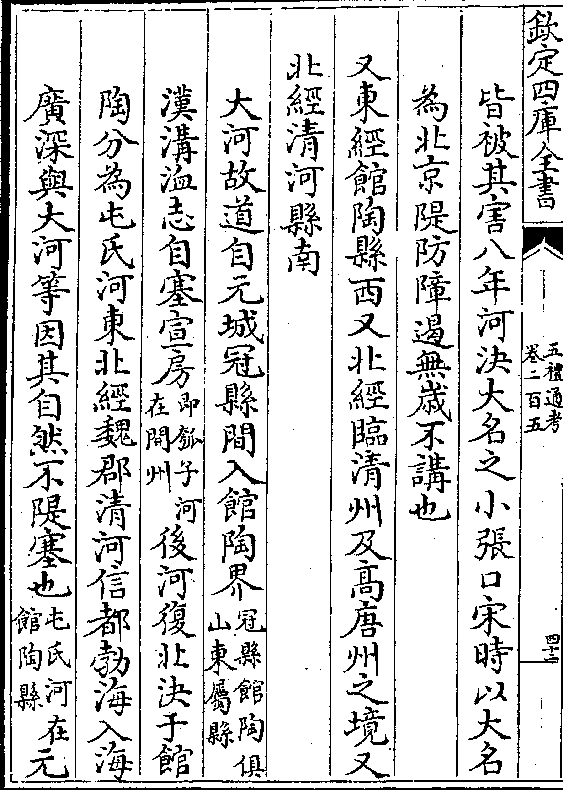 欽定四庫全書
五禮通考
卷二百五
四十二
皆被其害八年河決大名之小張口宋時以大名
為北京隄防障遏無歲不講也
又東經館陶縣西又北經臨清州及高唐州之境又
北經清河縣南
大河故道自元城冠縣間入館陶界冠縣館陶俱山東屬縣
漢溝洫志自塞宣房即瓠子河在開州後河復北決于館
陶分為屯氏河東北經魏郡清河信都勃海入海
廣深與大河等因其自然不隄塞也屯氏河在元館陶縣